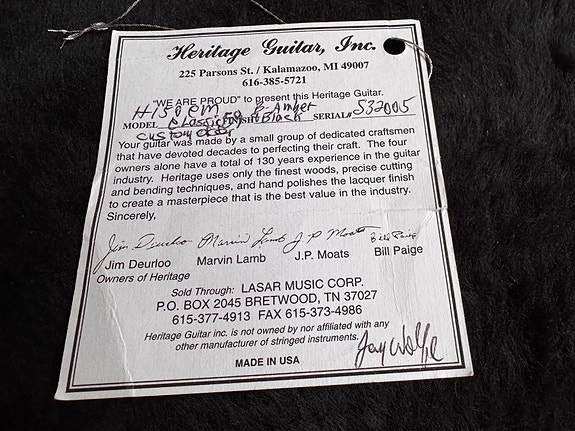 Heritage Guitar, Inc.
225 Parsons St. / Kalamazoo, MI 49007
616-385-5721
"WE ARE PROUD" to present this Heritage Guitar.
H150 CM
MODEL Classic FINISH Black SERIAL# S32005
Custom
Your guitar was made by a small group of dedicated craftsmen
that have devoted decades to perfecting their craft. The four
owners alone have a total of 130 years experience in the guitar
industry. Heritage uses only the finest woods, precise cutting
and bending techniques, and hand polishes the lacquer finish
to create a masterpiece that is the best value in the industry.
Sincerely,
Jim Deurloo Marvin Lamb J.P. Moats Bill Paige
Jim Deurloo Marvin Lamb J.P. Moats Bill Paige
Owners of Heritage
Sold Through: LASAR MUSIC CORP.
P.O. BOX 2045 BRETWOOD, TN 37027
615-377-4913 FAX 615-373-4986
Heritage Guitar inc. is not owned by nor affiliated with any
other manufacturer of stringed instruments.
Jay Wolfe
MADE IN USA